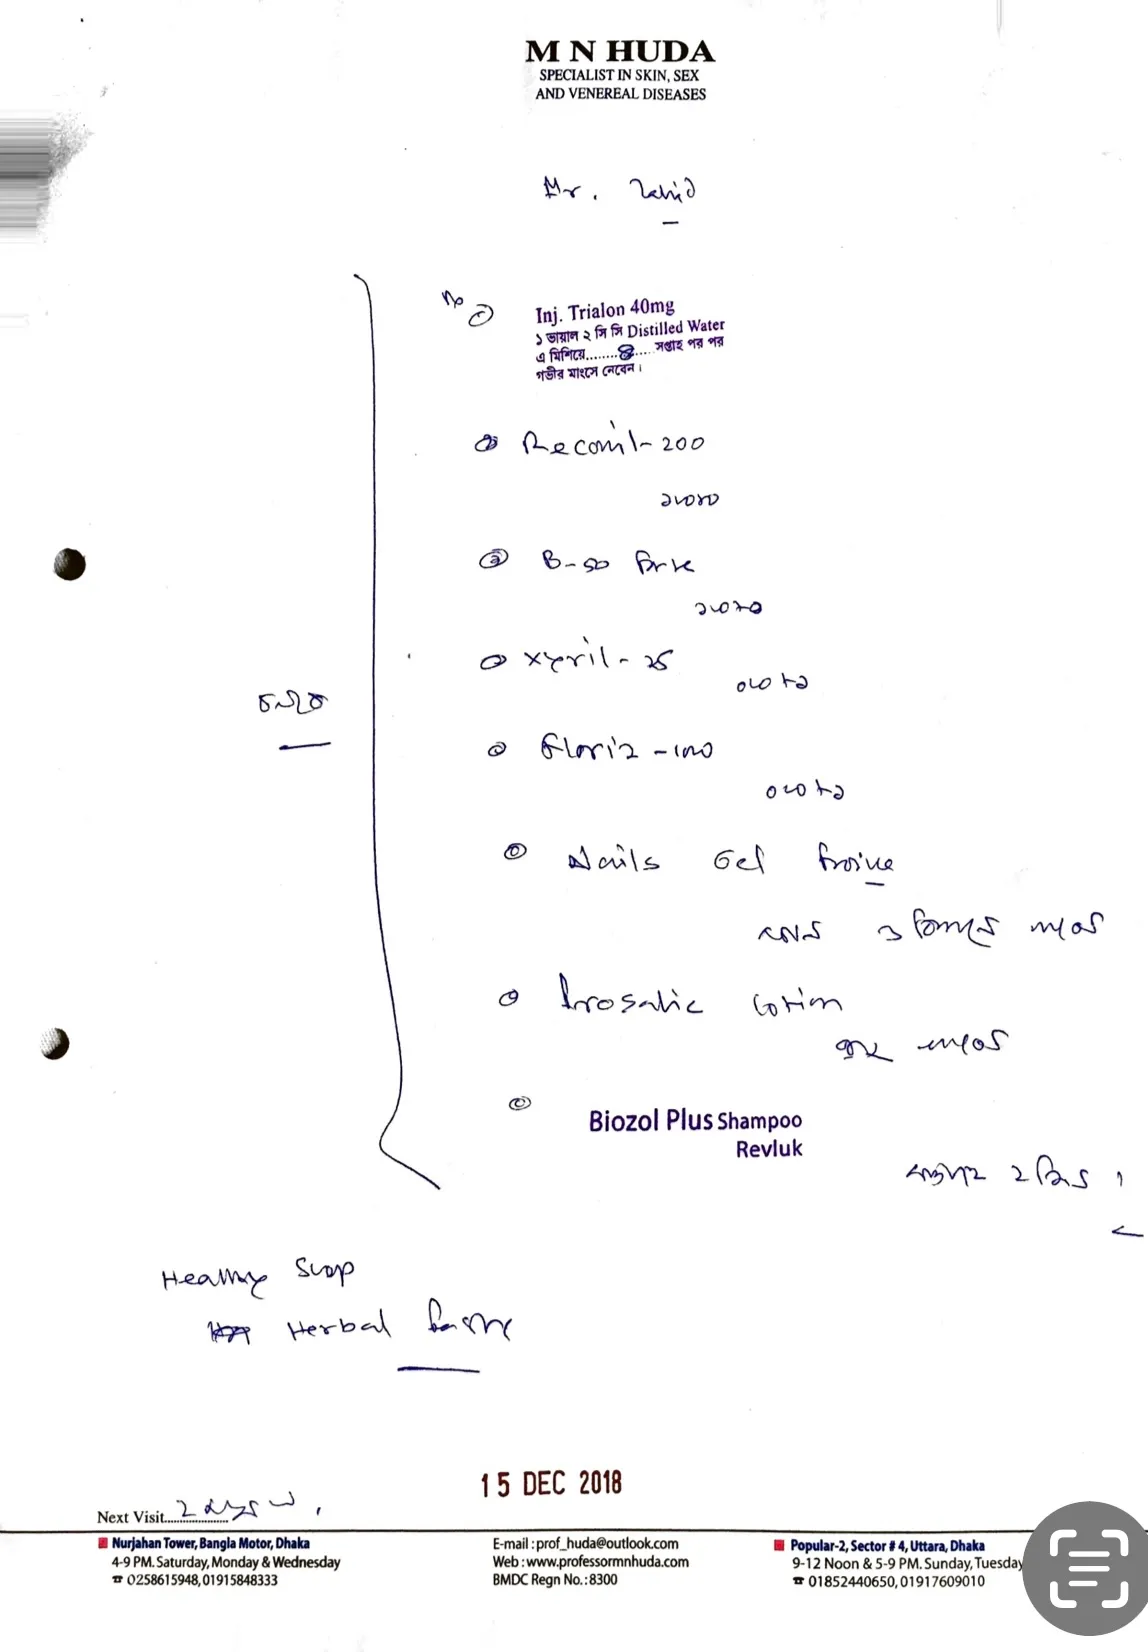 M N HUDA
SPECIALIST IN SKIN, SEX
AND VENEREAL DISEASES
Mr. Zahid
Inj. Trialon 40mg
১ ভায়াল ২ সি সি Distilled Water
এ মিশিয়ে........৪..... সপ্তাহ পর পর
গভীর মাংসে নেবেন।
Reconil - 200
১+০+০
B-50 forte
১+০+১
Xyril - 25
০+০+১
চলবে
০+০+১
Nails Gel
Prosalic Lotion
Biozol Plus Shampoo
Revluk
সপ্তাহে ২ দিন।
Healthy Soap
Herbal
15 DEC 2018
Next Visit........ 2
Nurjahan Tower, Bangla Motor, Dhaka
4-9 PM. Saturday, Monday & Wednesday
☎ 0258615948, 01915848333
E-mail : prof_huda@outlook.com
Web : www.professormnhuda.com
BMDC Regn No.: 8300
Popular-2, Sector # 4, Uttara, Dhaka
9-12 Noon & 5-9 PM. Sunday, Tuesday
☎ 01852440650, 01917609010